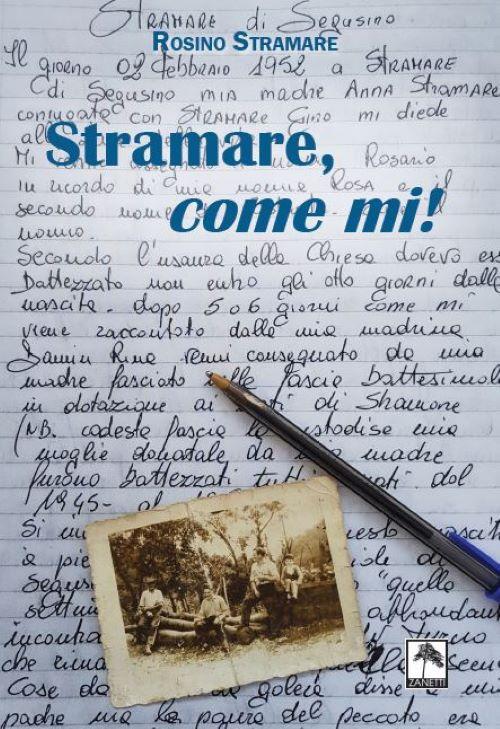 STRAMARE di Segusino
ROSINO STRAMARE
Il giorno 02 Febbraio 1952 a STRAMARE
di Segusino mia madre Anna Stramare
coniugata con STRAMARE Gino mi diede
Stramare,
Mi Rosario
in ricordo di mia nonna ROSA e il
come mi!
secondo nome
nonno.
Secondo l'usanza della Chiesa dovevo ess
battezzato non entro gli otto giorni dalla
nascita. dopo 5 o 6 giorni come mi
viene raccontato dalla mia madrina
Damin Rina venni consegnato da mia
madre fasciato nella fascia battesimale
in dotazione ai di Stramare
(NB. codesta fascia la custodisce mia
moglie donatale da mia madre
furono battezzati tutti i nati dal
1945- al
Si in questo
a pie
Segus
"quello
settim abbondant
incontra
che rima
Cose da goleia disse a mi
padre ma la paura del peccato era
ZANETTI